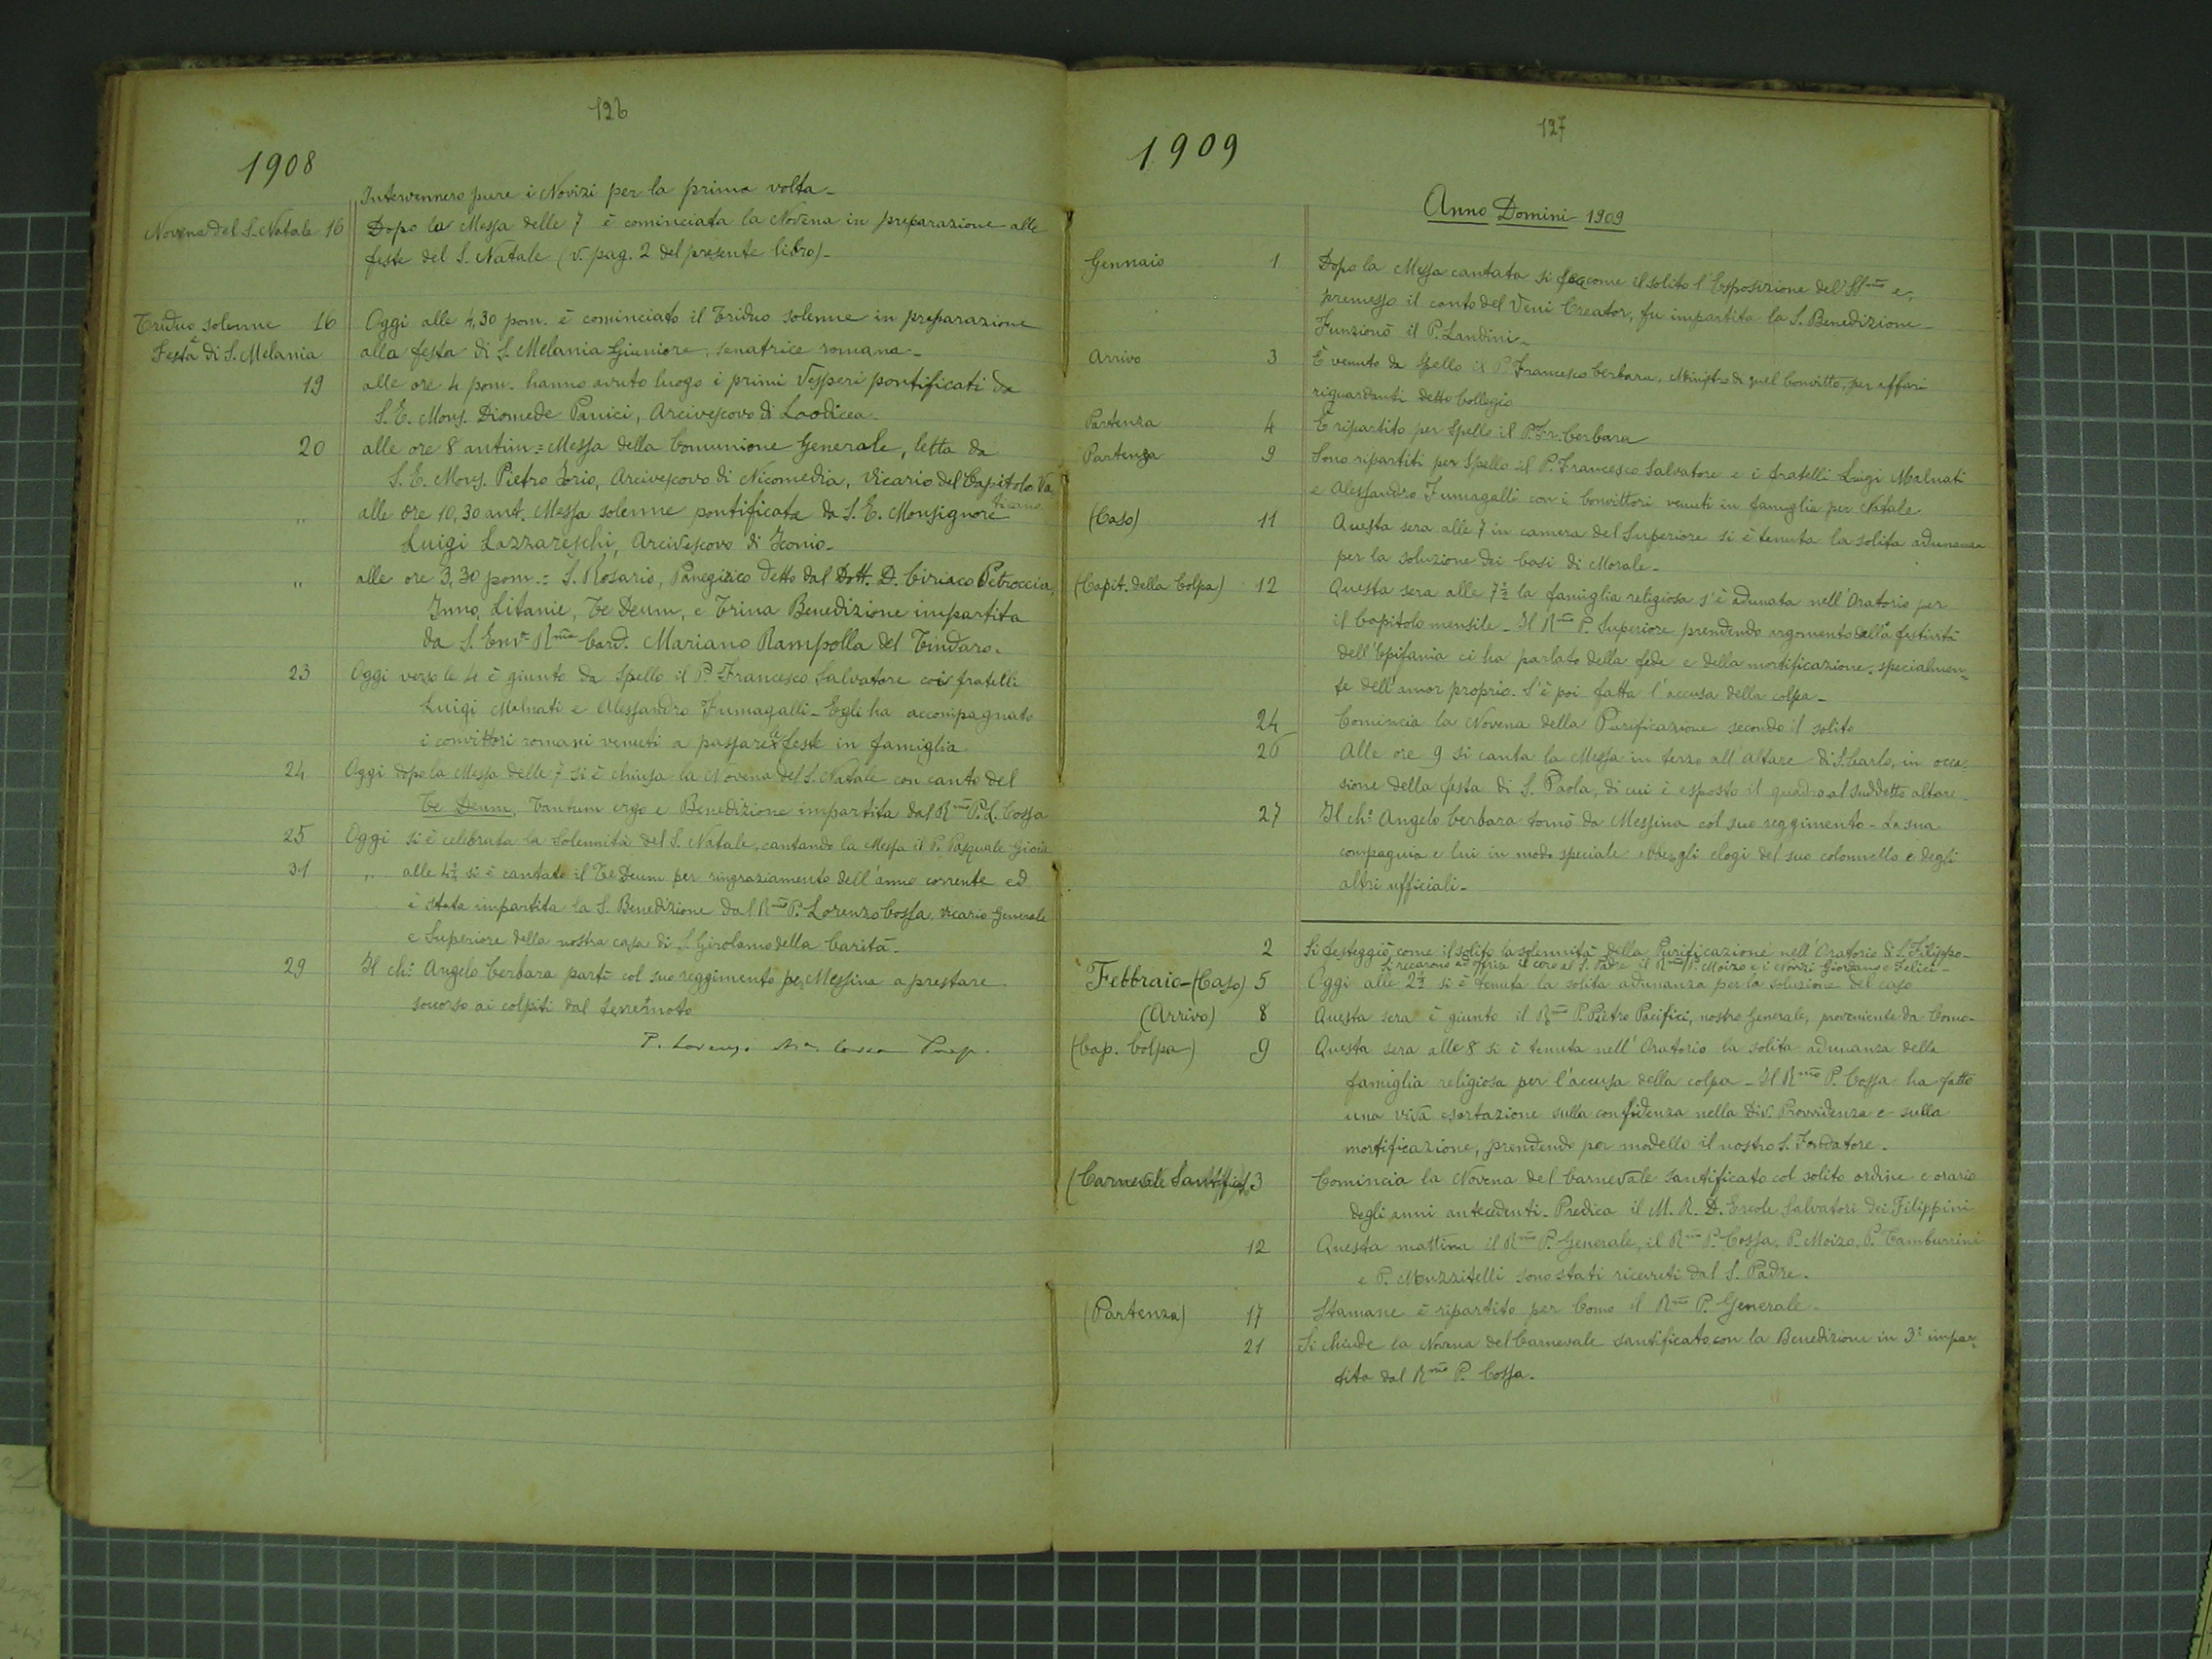 126
1908
Intervennero pure i Novizi per la prima volta_
Novena del S. Natale 16 Dopo la Messa delle 7 è cominciata la Novena in preparazione alle
feste del S. Natale (v. pag. 2 del presente libro)_
Triduo solenne 16 Oggi alle 4,30 pom. è cominciato il Triduo solenne in preparazione
Festa di S. Melania alla festa di S. Melania Giuniore, senatrice romana_
19 alle ore 4 pom. hanno avuto luogo i primi Vesperi pontificati da
S. E. Mons. Diomede Panici, Arcivescovo di Laodicea_
20 alle ore 8 antim = Messa della Comunione Generale, letta da
S. E. Mons. Pietro Iorio, Arcivescovo di Nicomedia, Vicario del Capitolo Va
ticano
" alle ore 10,30 ant. Messa solenne pontificata da S. E. Monsignore
Luigi Lazzareschi, Arcivescovo di Iconio_
" alle ore 3,30 pom. = S. Rosario, Panegirico detto dal Dott. D. Ciriaco Petroccia,
Inno, Litanie, Te Deum, e Trina Benedizione impartita
da S. Emª Rma Card. Mariano Rampolla del Tindaro.
23 Oggi verso le 4 è giunto da Spello il P. Francesco Salvatore coi fratelli
Luigi Malnati e Alessandro Fumagalli_ Egli ha accompagnato
i convittori romani venuti a passare le feste in famiglia
24 Oggi dopo la Messa delle 7 si è chiusa la Novena del S. Natale con canto del
Te Deum, Tantum ergo e Benedizione impartita dal Rmo P. L. Cossa
25 Oggi si è celebrata la Solennità del S. Natale, cantando la Messa il P. Pasquale Gioia
31 " alle 4½ si è cantato il Te Deum per ringraziamento dell'anno corrente ed
è stata impartita la S. Benedizione dal Rmo P. Lorenzo Cossa, Vicario Generale
e Superiore della nostra casa di S. Girolamo della Carità_
29 Il ch: Angelo Cerbara partì col suo reggimento per Messina a prestare
soccorso ai colpiti dal terremoto
P. Lorenzo Cossa Prep.
127
1909
Anno Domini 1909
Gennaio 1 Dopo la Messa cantata si fece come il solito l'Esposizione del SSmo e,
premesso il canto del Veni Creator, fu impartita la S. Benedizione_
Funzionò il P. Landini_
Arrivo 3 È venuto da Spello il P. Francesco Cerbara, Ministro di quel Convitto, per affari
riguardanti detto Collegio
Partenza 4 È ripartito per Spello il P. Fr. Cerbara
Partenza 9 Sono ripartiti per Spello il P. Francesco Salvatore e i fratelli Luigi Malnati
e Alessandro Fumagalli con i Convittori venuti in famiglia per Natale
(Caso) 11 Questa sera alle 7 in camera del Superiore si è tenuta la solita adunanza
per la soluzione dei Casi di Morale_
(Capit. della Colpa) 12 Questa sera alle 7½ la famiglia religiosa s'è adunata nell'Oratorio per
il Capitolo mensile_ Il Rmo P. Superiore prendendo argomento dalla festività
dell'Epifania ci ha parlato della fede e della mortificazione, specialmen=
te dell'amor proprio. S'è poi fatta l'accusa della colpa_
24 Comincia la Novena della Purificazione secondo il solito
26 Alle ore 9 si canta la Messa in terzo all'altare di S. Carlo, in occa=
sione della festa di S. Paola, di cui è esposto il quadro al suddetto altare_
27 Il ch: Angelo Cerbara tornò da Messina col suo reggimento_ La sua
compagnia e lui in modo speciale ebbe gli elogi del suo colonnello e degli
altri ufficiali_
2 Si festeggiò come il solito la solennità della Purificazione nell'Oratorio di S. Filippo_
Si recarono ad offrire il cero al S. Padre il Rmo P. Moizo e i Novizi Giordano e Felici_
Febbraio_(Caso) 5 Oggi alle 2½ si è tenuta la solita adunanza per la soluzione del caso
(Arrivo) 8 Questa sera è giunto il Rmo P. Pietro Pacifici, nostro Generale, proveniente da Como_
(Cap. Colpa) 9 Questa sera alle 8 si è tenuta nell'Oratorio la solita adunanza della
famiglia religiosa per l'accusa della colpa_ Il Rmo P. Cossa ha fatto
una viva esortazione sulla confidenza nella Div. Provvidenza e sulla
mortificazione, prendendo per modello il nostro S. Fondatore_
(Carnevale Santificato) 13 Comincia la Novena del Carnevale santificato col solito ordine e orario
degli anni antecedenti_ Predica il M. R. D. Ercole Salvatori dei Filippini
12 Questa mattina il Rmo P. Generale, il Rmo P. Cossa, P. Moizo, P. Tamburrini
e P. Muzzitelli sono stati ricevuti dal S. Padre.
(Partenza) 17 Stamane è ripartito per Como il Rmo P. Generale_
21 Si chiude la Novena del Carnevale santificato con la Benedizione in 3º impar=
tita dal Rmo P. Cossa_